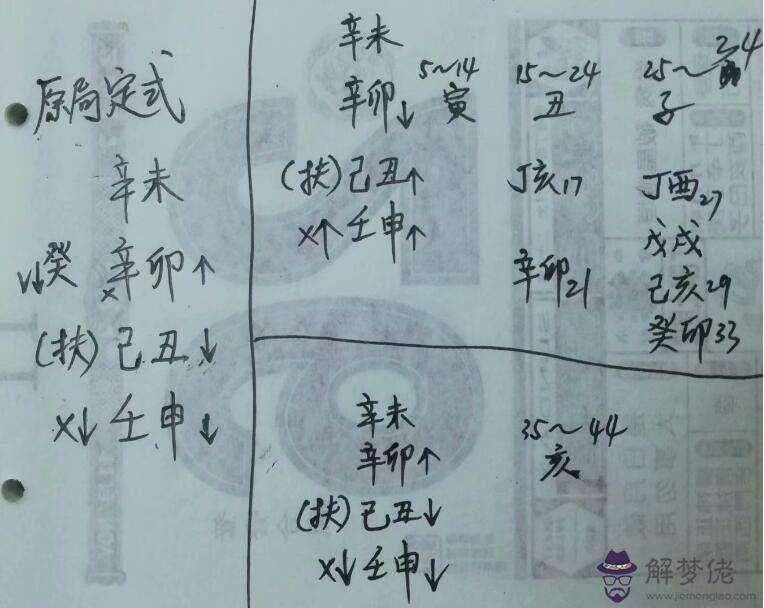 原局定式
辛未
↓癸 辛卯↑
×
(扶)己丑↓
×↓壬申↓
辛未
辛卯↓
(扶)己丑↑
×↑壬申↑
5～14
寅
15～24
丑
丁亥17
辛卯21
25～34
子
丁酉27
戊戌
己亥29
癸卯33
辛未
辛卯↑
(扶)己丑↓
×↓壬申↓
35～44
亥
解梦佬
www.jiemenglao.com